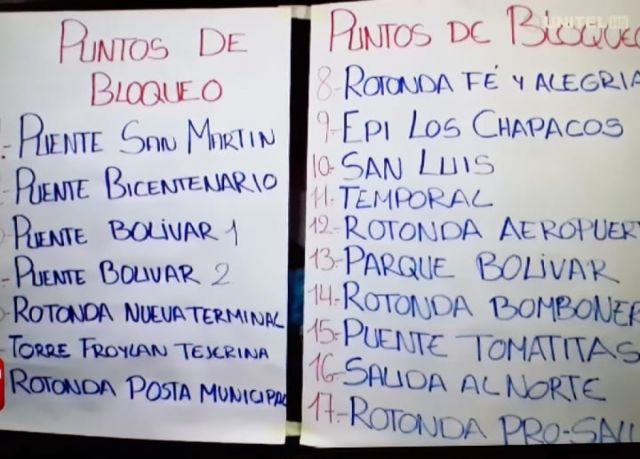 UNITEL
PUNTOS DE
BLOQUEO
PUENTE SAN MARTIN
PUENTE BICENTENARIO
PUENTE BOLÍVAR 1
PUENTE BOLIVAR 2
ROTONDA NUEVA TERMINAL
TORRE FROYLAN TEJERINA
ROTONDA POSTA MUNICIPAL
PUNTOS DE BLOQUEO
8- ROTONDA FÉ Y ALEGRIA
9- EPI LOS CHAPACOS
10- SAN LUIS
11- TEMPORAL
12- ROTONDA AEROPUER
13- PARQUE BOLÍVAR
14- ROTONDA BOMBONER
15- PUENTE TOMATITAS
16- SALIDA AL NORTE
17- ROTONDA PRO-SAL